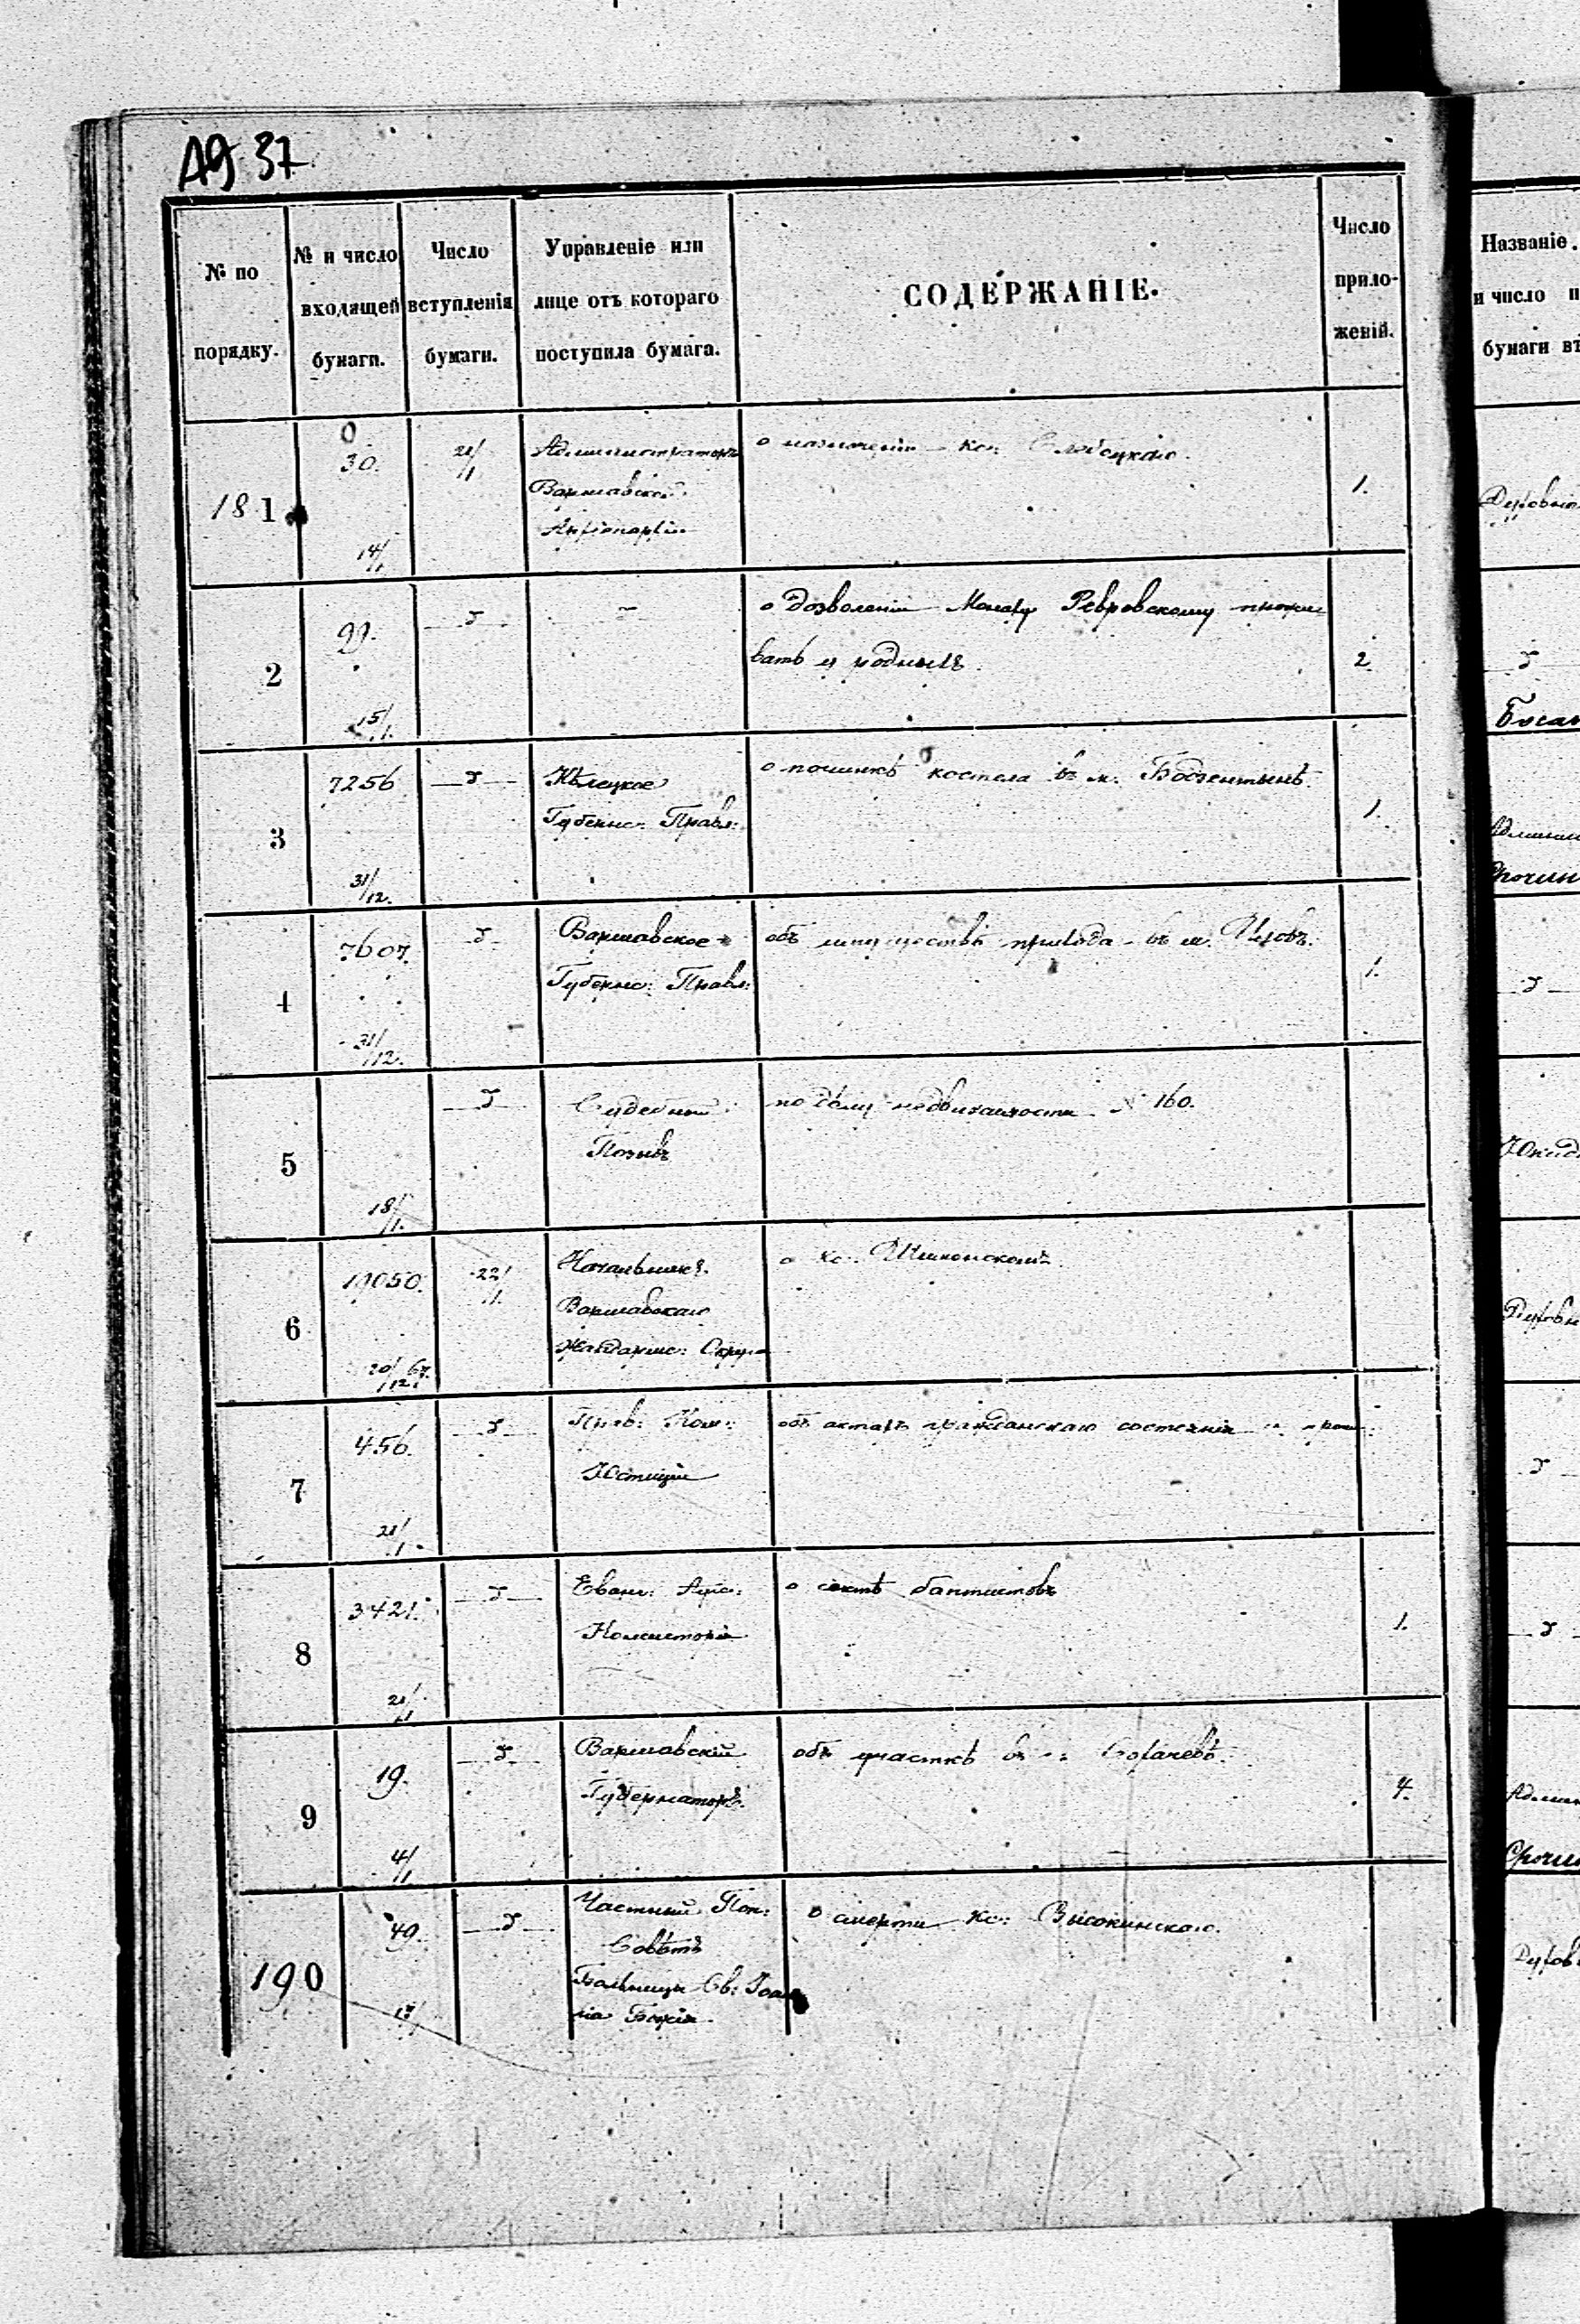 АЭ 37
№ по порядку.
№ и число входящей бумаги.
Число вступленія бумаги.
Управленіе или лице отъ котораго поступила бумага.
СОДЕРЖАНІЕ.
Число приложеній.
Названіе.
и число
бумаги
181
30.
14/1
21/1
Администраторъ
Варшавской
Архіепархіи
о назначеніи кс:
1.
2
99.
15/1.
о дозволеніи Монаху прожи
вать у родныхъ.
2
3
7256
31/12.
Кѣлецкое
Губернс: Правл:
о починкѣ костела въ м. Бодзентынѣ.
1.
4
7607.
31/12.
Варшавское
Губернс: Правл:
объ имуществѣ прихода въ м.
1.
5
18/1.
Судебный
Позывъ
по дѣлу недвижимости № 160.
6
19050.
20/12 67.
22/1.
Начальникъ
Варшавскаго
Жандармс: Округа
о кс:
7
456.
21/1.
Прав: Ком:
Юстиціи
объ актахъ гражданскаго состоянія
8
3421.
21/1
Еванг: Аугс:
Консисторія
о сектѣ баптистовъ
1.
9
19.
4/1
Варшавскій
Губернаторъ.
объ участкѣ въ г: Сохачевѣ.
4.
190
49.
17/1
Частный Поп:
Совѣтъ
Больницы Св: Іоан
на Божія
о смерти кс: Высокинскаго.